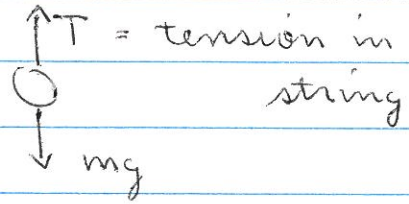 T = tension in
string
mg